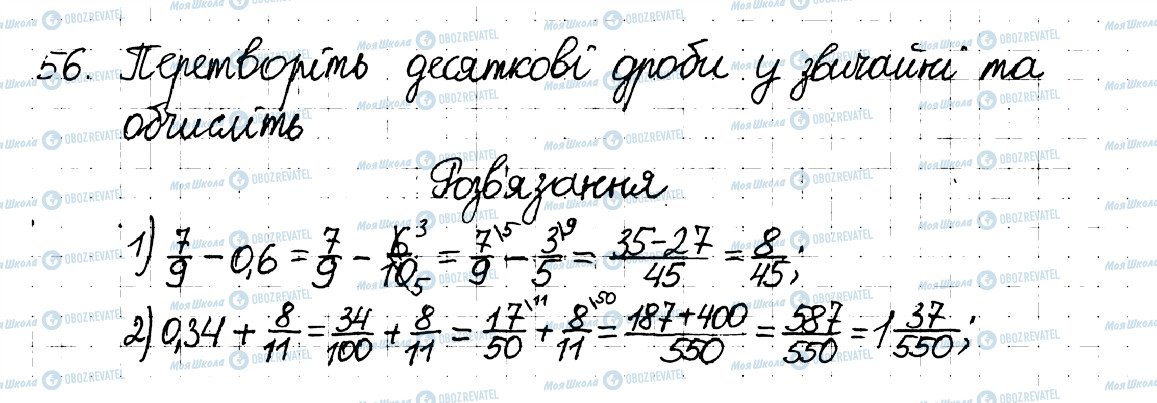 56. Перетворіть десяткові дроби у звичайні та
обчисліть
Розв'язання
1) 7/9 - 0,6 = 7/9 - 6³/10₅ = 7\5/9 - 3\9/5 = 35-27/45 = 8/45;
2) 0,34 + 8/11 = 34/100 + 8/11 = 17\11/50 + 8\50/11 = 187+400/550 = 587/550 = 1 37/550;